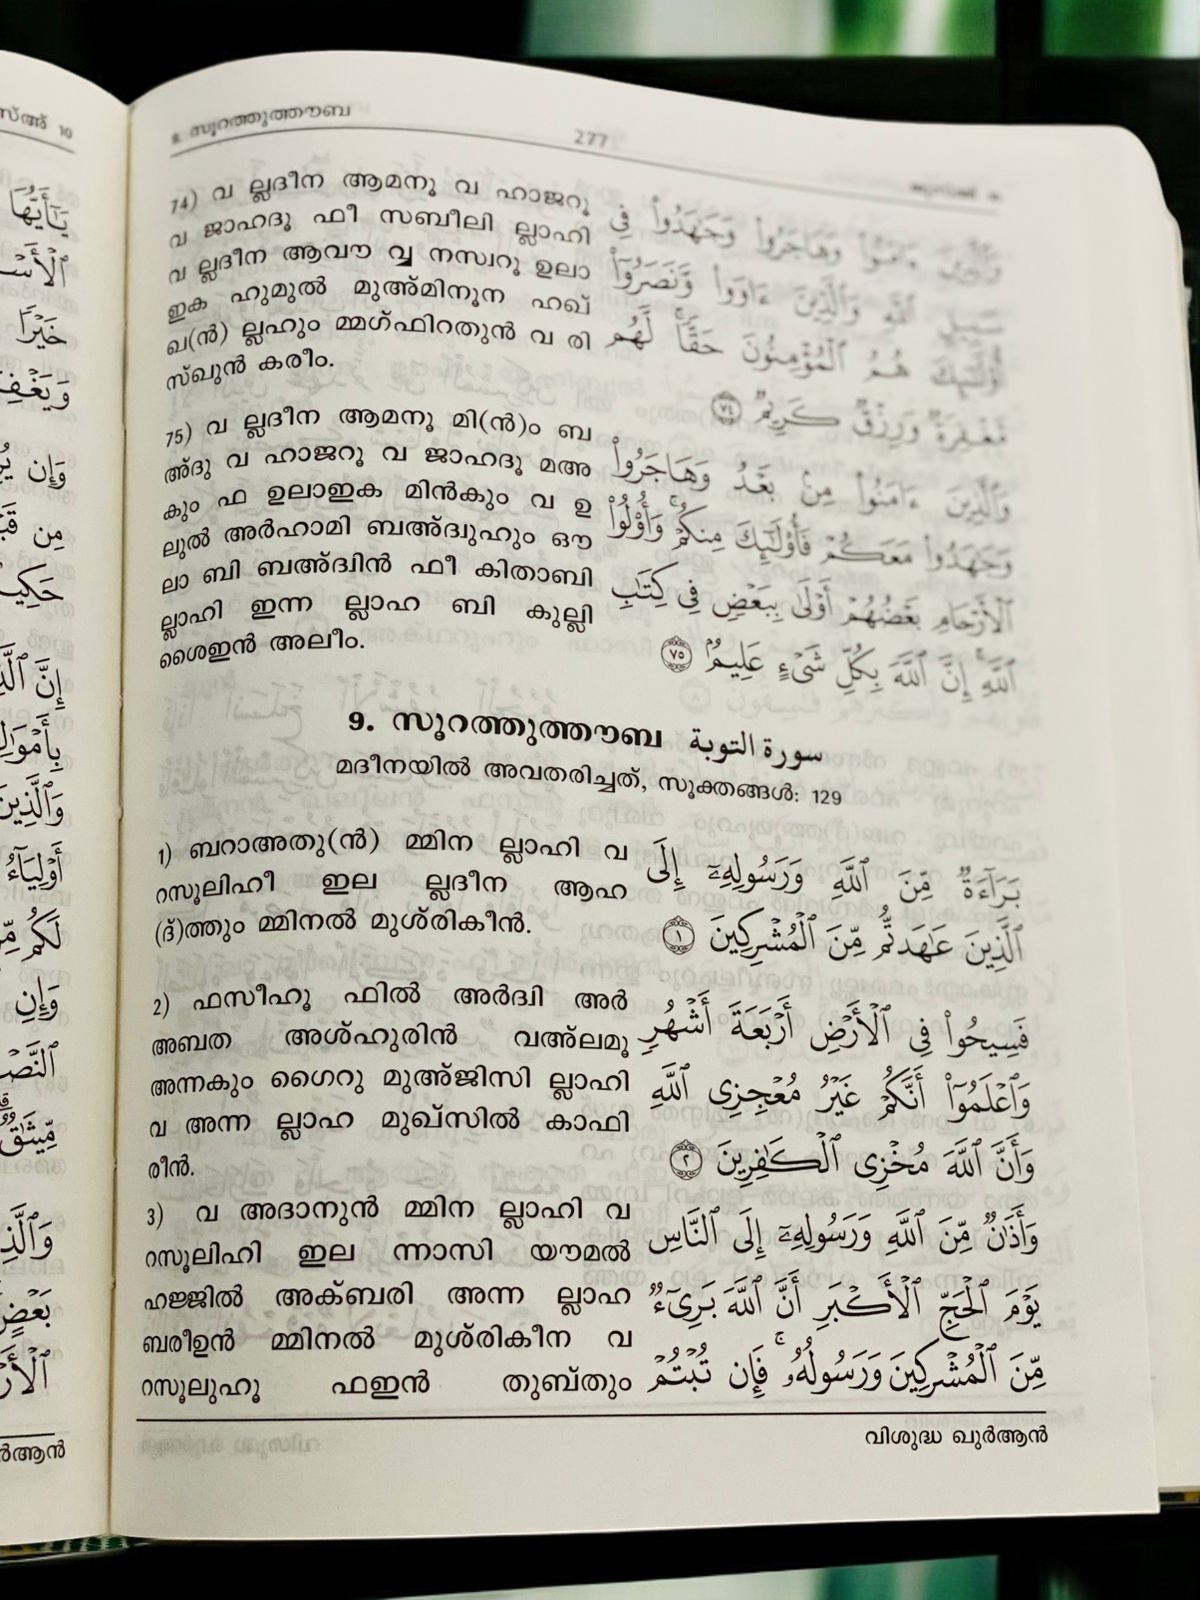 9. സൂറത്തുത്തൗബ
277
74) വ ല്ലദീന ആമനൂ വ ഹാജറൂ
വ ജാഹദൂ ഫീ സബീലി ല്ലാഹി
വ ല്ലദീന ആവൗ വ്വ നസ്വറൂ ഉലാ
ഇക ഹുമുൽ മുഅ്മിനൂന ഹഖ്
ഖ(ൻ) ല്ലഹും മ്മഗ്ഫിറതുൻ വ രി
സ്ഖുൻ കരീം.
وَٱلَّذِينَ ءَامَنُوا۟ وَهَاجَرُوا۟ وَجَٰهَدُوا۟ فِى
سَبِيلِ ٱللَّهِ وَٱلَّذِينَ ءَاوَوا۟ وَّنَصَرُوٓا۟
أُو۟لَٰٓئِكَ هُمُ ٱلْمُؤْمِنُونَ حَقًّا ۚ لَّهُم
مَّغْفِرَةٌ وَرِزْقٌ كَرِيمٌ ٧٤
75) വ ല്ലദീന ആമനൂ മി(ൻ)ം ബ
അ്ദു വ ഹാജറൂ വ ജാഹദൂ മഅ
കും ഫ ഉലാഇക മിൻകും വ ഉ
ലുൽ അർഹാമി ബഅ്ദ്വുഹും ഔ
ലാ ബി ബഅ്ദ്വിൻ ഫീ കിതാബി
ല്ലാഹി ഇന്ന ല്ലാഹ ബി കുല്ലി
ശൈഇൻ അലീം.
وَٱلَّذِينَ ءَامَنُوا۟ مِنۢ بَعْدُ وَهَاجَرُوا۟
وَجَٰهَدُوا۟ مَعَكُمْ فَأُو۟لَٰٓئِكَ مِنكُمْ ۚ وَأُو۟لُوا۟
ٱلْأَرْحَامِ بَعْضُهُمْ أَوْلَىٰ بِبَعْضٍ فِى كِتَٰبِ
ٱللَّهِ ۗ إِنَّ ٱللَّهَ بِكُلِّ شَىْءٍ عَلِيمٌۢ ٧٥
9. സൂറത്തുത്തൗബ سورة التوبة
മദീനയിൽ അവതരിച്ചത്, സൂക്തങ്ങൾ: 129
1) ബറാഅതു(ൻ) മ്മിന ല്ലാഹി വ
റസൂലിഹീ ഇല ല്ലദീന ആഹ
(ദ്)ത്തും മ്മിനൽ മുശ്രികീൻ.
بَرَآءَةٌ مِّنَ ٱللَّهِ وَرَسُولِهِۦٓ إِلَى
ٱلَّذِينَ عَٰهَدتُّم مِّنَ ٱلْمُشْرِكِينَ ١
2) ഫസീഹൂ ഫിൽ അർദ്വി അർ
അബത അശ്ഹുരിൻ വഅ്ലമൂ
അന്നകും ഗൈറു മുഅ്ജിസി ല്ലാഹി
വ അന്ന ല്ലാഹ മുഖ്സിൽ കാഫി
രീൻ.
فَسِيحُوا۟ فِى ٱلْأَرْضِ أَرْبَعَةَ أَشْهُرٍ
وَٱعْلَمُوٓا۟ أَنَّكُمْ غَيْرُ مُعْجِزِى ٱللَّهِ
وَأَنَّ ٱللَّهَ مُخْزِى ٱلْكَٰفِرِينَ ٢
3) വ അദാനുൻ മ്മിന ല്ലാഹി വ
റസൂലിഹി ഇല ന്നാസി യൗമൽ
ഹജ്ജിൽ അക്ബരി അന്ന ല്ലാഹ
ബരീഉൻ മ്മിനൽ മുശ്രികീന വ
റസൂലുഹൂ ഫഇൻ തുബ്തും
وَأَذَٰنٌ مِّنَ ٱللَّهِ وَرَسُولِهِۦٓ إِلَى ٱلنَّاسِ
يَوْمَ ٱلْحَجِّ ٱلْأَكْبَرِ أَنَّ ٱللَّهَ بَرِىٓءٌ
مِّنَ ٱلْمُشْرِكِينَ وَرَسُولُهُۥ ۚ فَإِن تُبْتُمْ
വിശുദ്ധ ഖുർആൻ